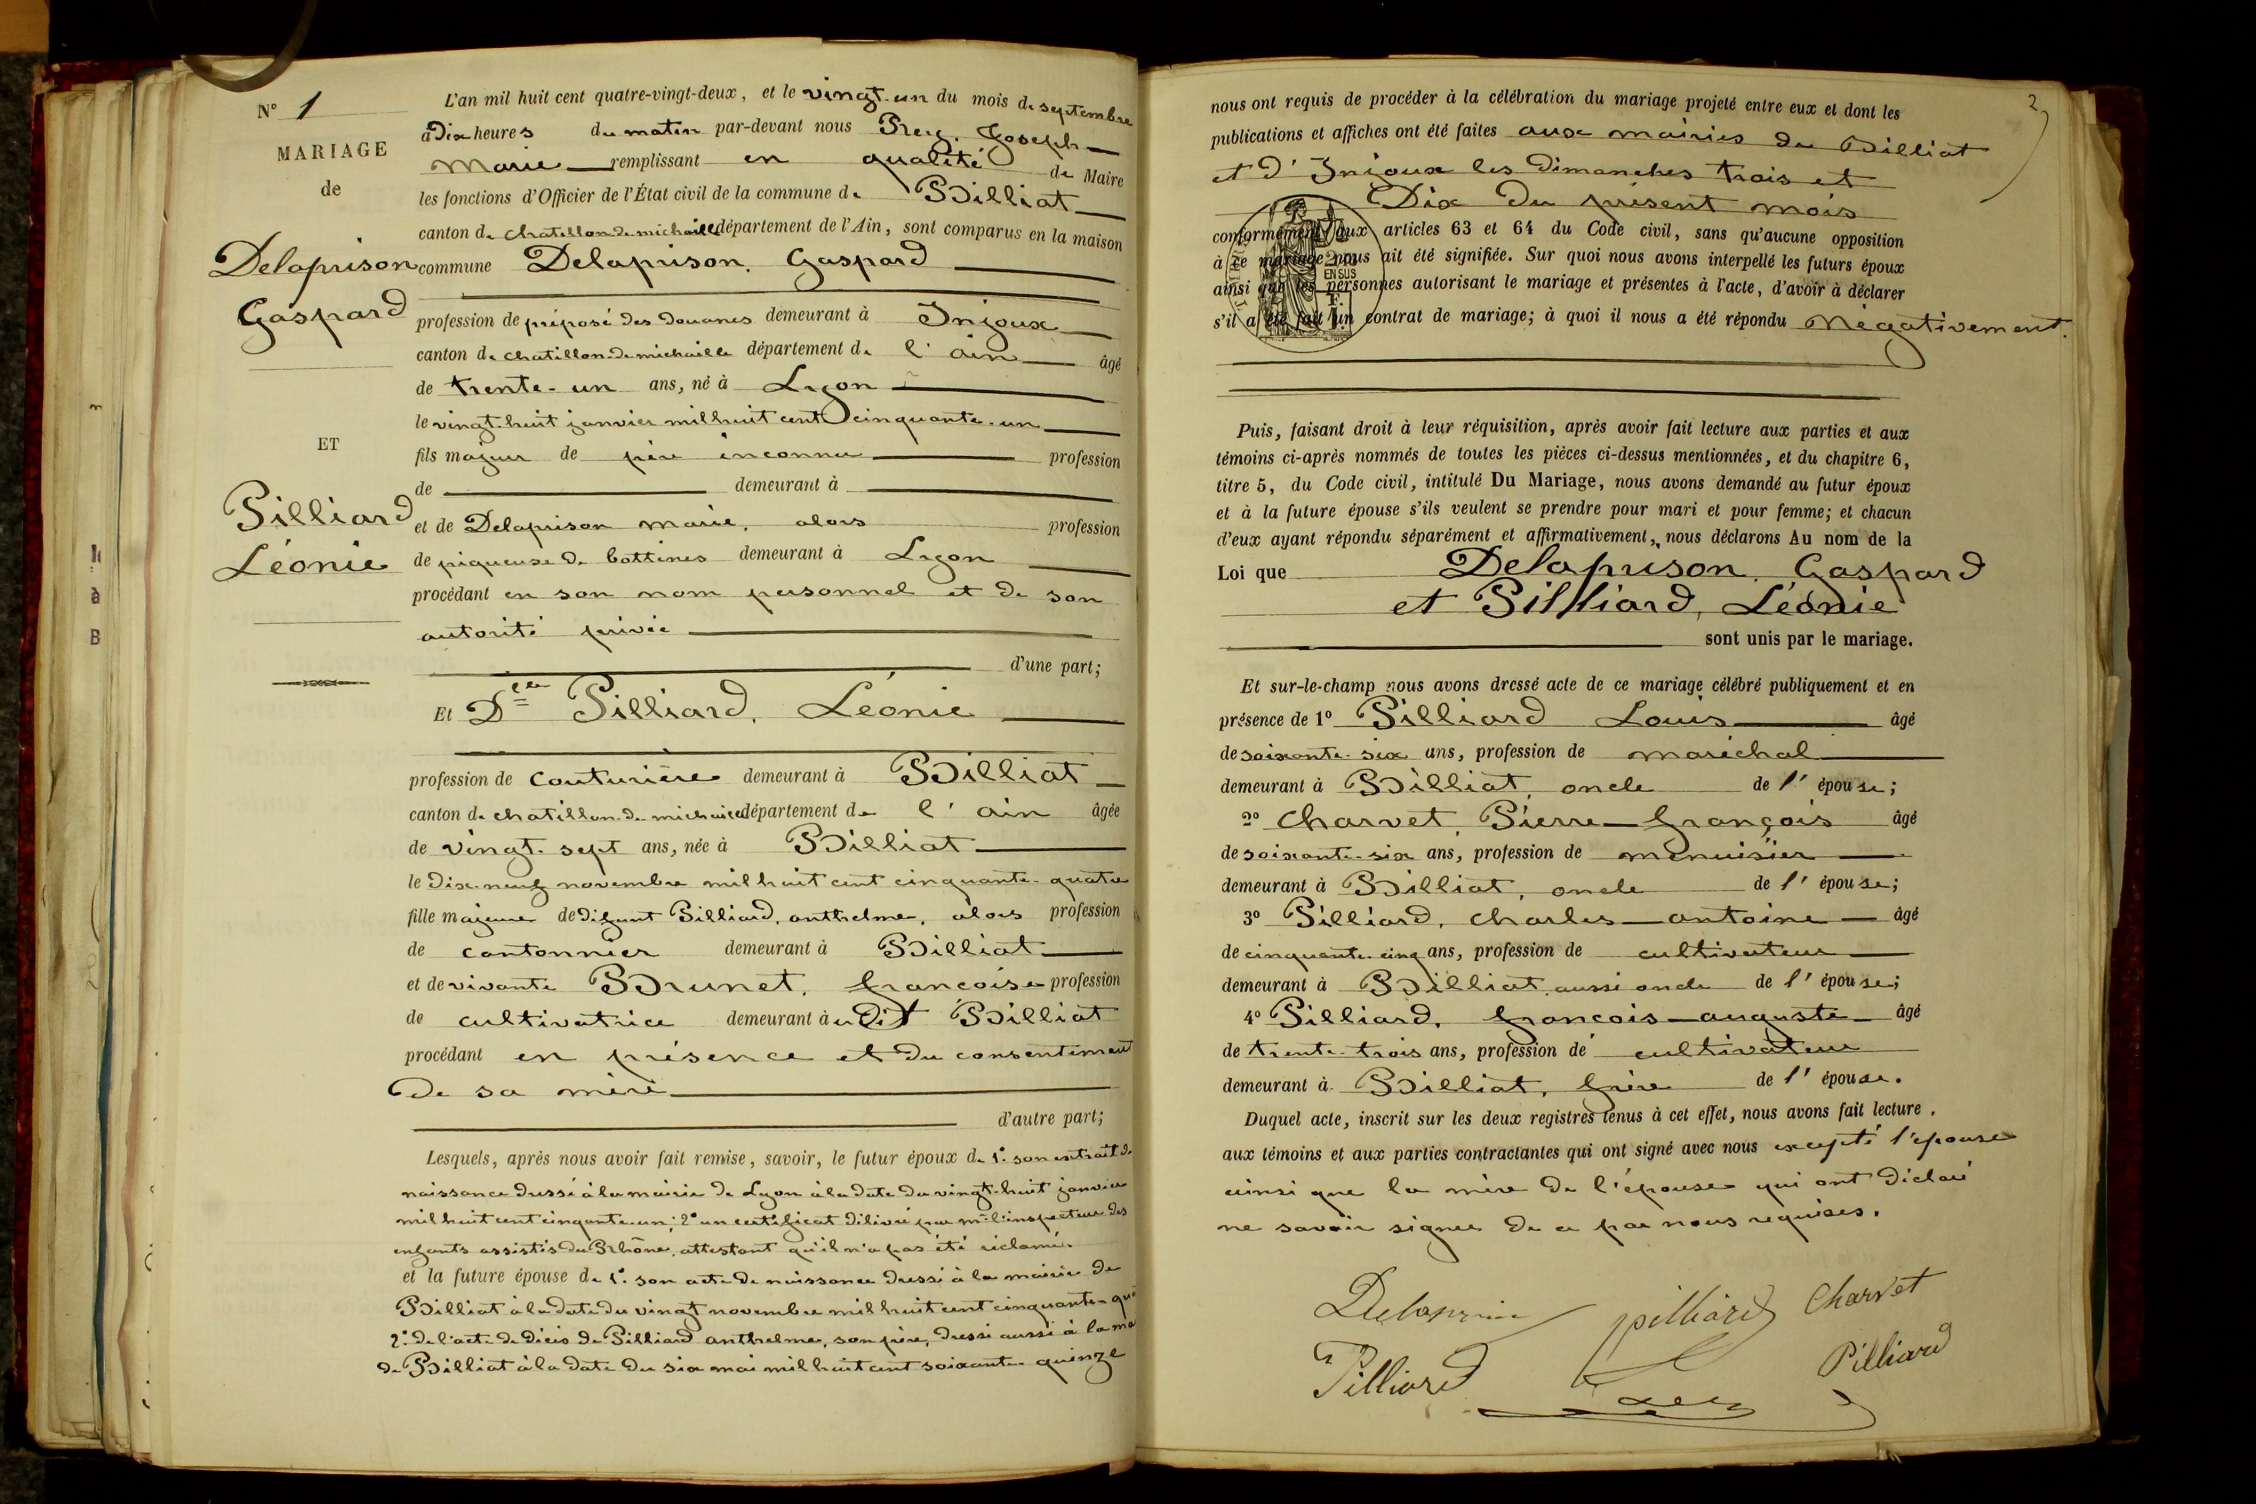 N° 1
MARIAGE
de
Delaprison
Gaspard
ET
Pilliard
Léonie
L'an mil huit cent quatre-vingt-deux, et le vingt-un du mois de septembre
à Dix heures du matin par-devant nous Rey, Joseph
Marie remplissant en qualité de Maire
les fonctions d'Officier de l'État civil de la commune de Billiat
canton de chatillon de michaille département de l'Ain, sont comparus en la maison
commune Delaprison, Gaspard
profession de préposé des Douanes demeurant à Injoux
canton de chatillon de michaille département de l'ain âgé
de trente-un ans, né à Lyon
le vingt-huit janvier mil huit cent cinquante-un
fils majeur de père inconnu profession
de demeurant à
et de Delaprison marie, alors profession
de piqueuse de bottines demeurant à Lyon
procédant en son nom personnel et de son
autorité privée
d'une part;
Et Delle Pilliard, Léonie
profession de couturière demeurant à Billiat
canton de chatillon-de michaille département de l'ain âgée
de vingt-sept ans, née à Billiat
le Dix-neuf novembre mil huit cent cinquante-quatre
fille majeure de défunt Pilliard, anthelme, alors profession
de cantonnier demeurant à Billiat
et de vivante Brunet, françoise profession
de cultivatrice demeurant à u dit Billiat
procédant en présence et du consentement
De sa mère
d'autre part;
Lesquels, après nous avoir fait remise, savoir, le futur époux de 1° son extrait de
naissance dressé à la mairie de Lyon à la date du vingt-huit janvier
mil huit cent cinqante-un; 2° un certificat délivré par mr l'inspecteur des
enfants assistés du Rhône, attestant qu'il n'a pas été réclamé.
et la future épouse de 1° son acte de naissance dressé à la mairie de
Billiat à la date du vingt novembre mil huit cent cinquante-qua
2° de l'acte de décès de Pilliard anthelme, son père, dressé aussi à la ma
de Billiat à la date du six mai mil huit cent soixante-quinze
nous ont requis de procéder à la célébration du mariage projeté entre eux et dont les
publications et affiches ont été faites aux mairies de Billiat
et d'Injoux les Dimanches trois et
Dix Du présent mois
conformément aux articles 63 et 64 du Code civil, sans qu'aucune opposition
à ce mariage nous ait été signifiée. Sur quoi nous avons interpellé les futurs époux
ainsi que les personnes autorisant le mariage et présentes à l'acte, d'avoir à déclarer
s'il a été fait un contrat de mariage; à quoi il nous a été répondu Négativement.
EN SUS
Puis, faisant droit à leur réquisition, après avoir fait lecture aux parties et aux
témoins ci-après nommés de toutes les pièces ci-dessus mentionnées, et du chapitre 6,
titre 5, du Code civil, intitulé Du Mariage, nous avons demandé au futur époux
et à la future épouse s'ils veulent se prendre pour mari et pour femme; et chacun
d'eux ayant répondu séparément et affirmativement, nous déclarons Au nom de la
Loi que Delaprison, Gaspard
et Pilliard, Léonie
sont unis par le mariage.
Et sur-le-champ nous avons dressé acte de ce mariage célébré publiquement et en
présence de 1° Pilliard Louis âgé
de soixante-six ans, profession de maréchal
demeurant à Billiat, oncle de l'épouse;
2° Charvet, Pierre-François âgé
de soixante-six ans, profession de menuisier
demeurant à Billiat, oncle de l'épouse;
3° Pilliard, charles-antoine âgé
de cinquante-cinq ans, profession de cultivateur
demeurant à Billiat, aussi oncle de l'épouse;
4° Pilliard, françois-auguste âgé
de trente-trois ans, profession de cultivateur
demeurant à Billiat, frère de l'épouse.
Duquel acte, inscrit sur les deux registres tenus à cet effet, nous avons fait lecture,
aux témoins et aux parties contractantes qui ont signé avec nous excepté l'épouse
ainsi que la mère de l'épouse qui ont déclaré
ne savoir signer de ce par nous requises.
Delaprison pilliard Charvet
Pilliard Pilliard
Rey